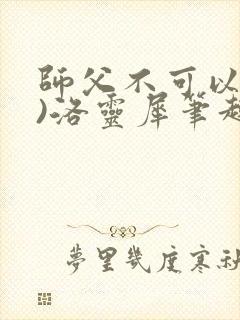 師父不可以
)洛靈犀筆趣
夢里幾度寒秋